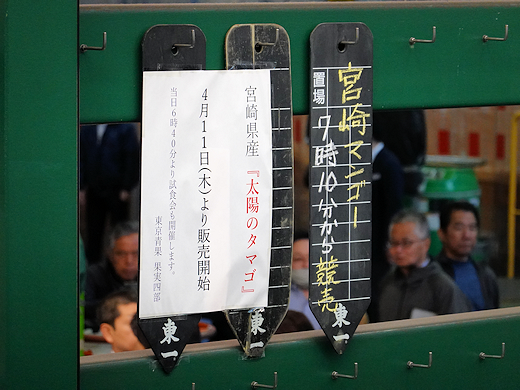 宮崎マンゴー
置場
7時10分から競売
東一
宮崎県産『太陽のタマゴ』
4月11日(木)より販売開始
当日6時40分より試食会も開催します。
東京青果 果実四部
東一
東一